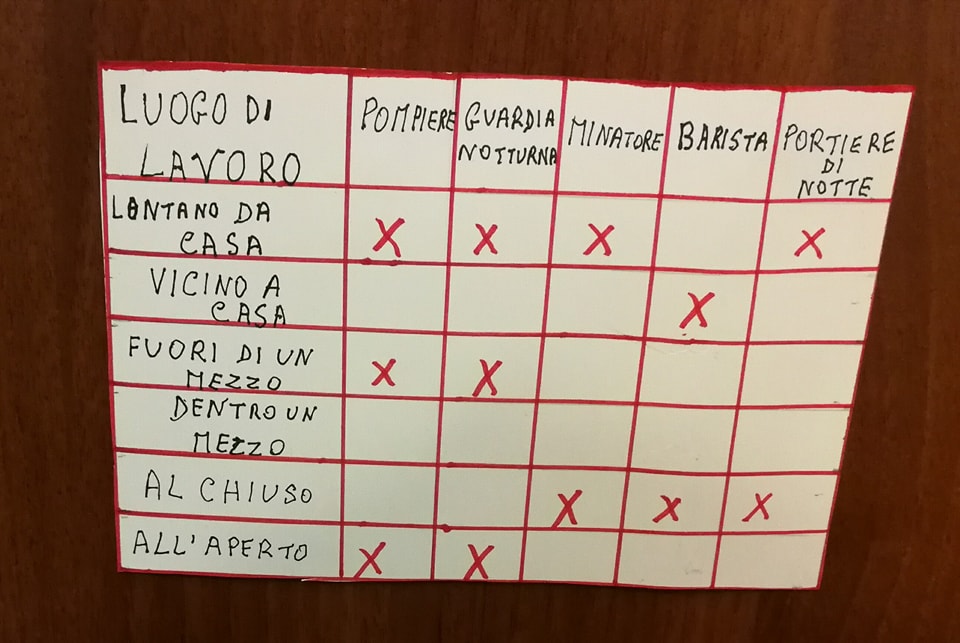 LUOGO DI
LAVORO
POMPIERE
GUARDIA
NOTTURNA
MINATORE
BARISTA
PORTIERE
DI
NOTTE
LONTANO DA
CASA
X X X X
VICINO A
CASA
X
FUORI DI UN
MEZZO
X X
DENTRO UN
MEZZO
AL CHIUSO
X X X
ALL'APERTO
X X